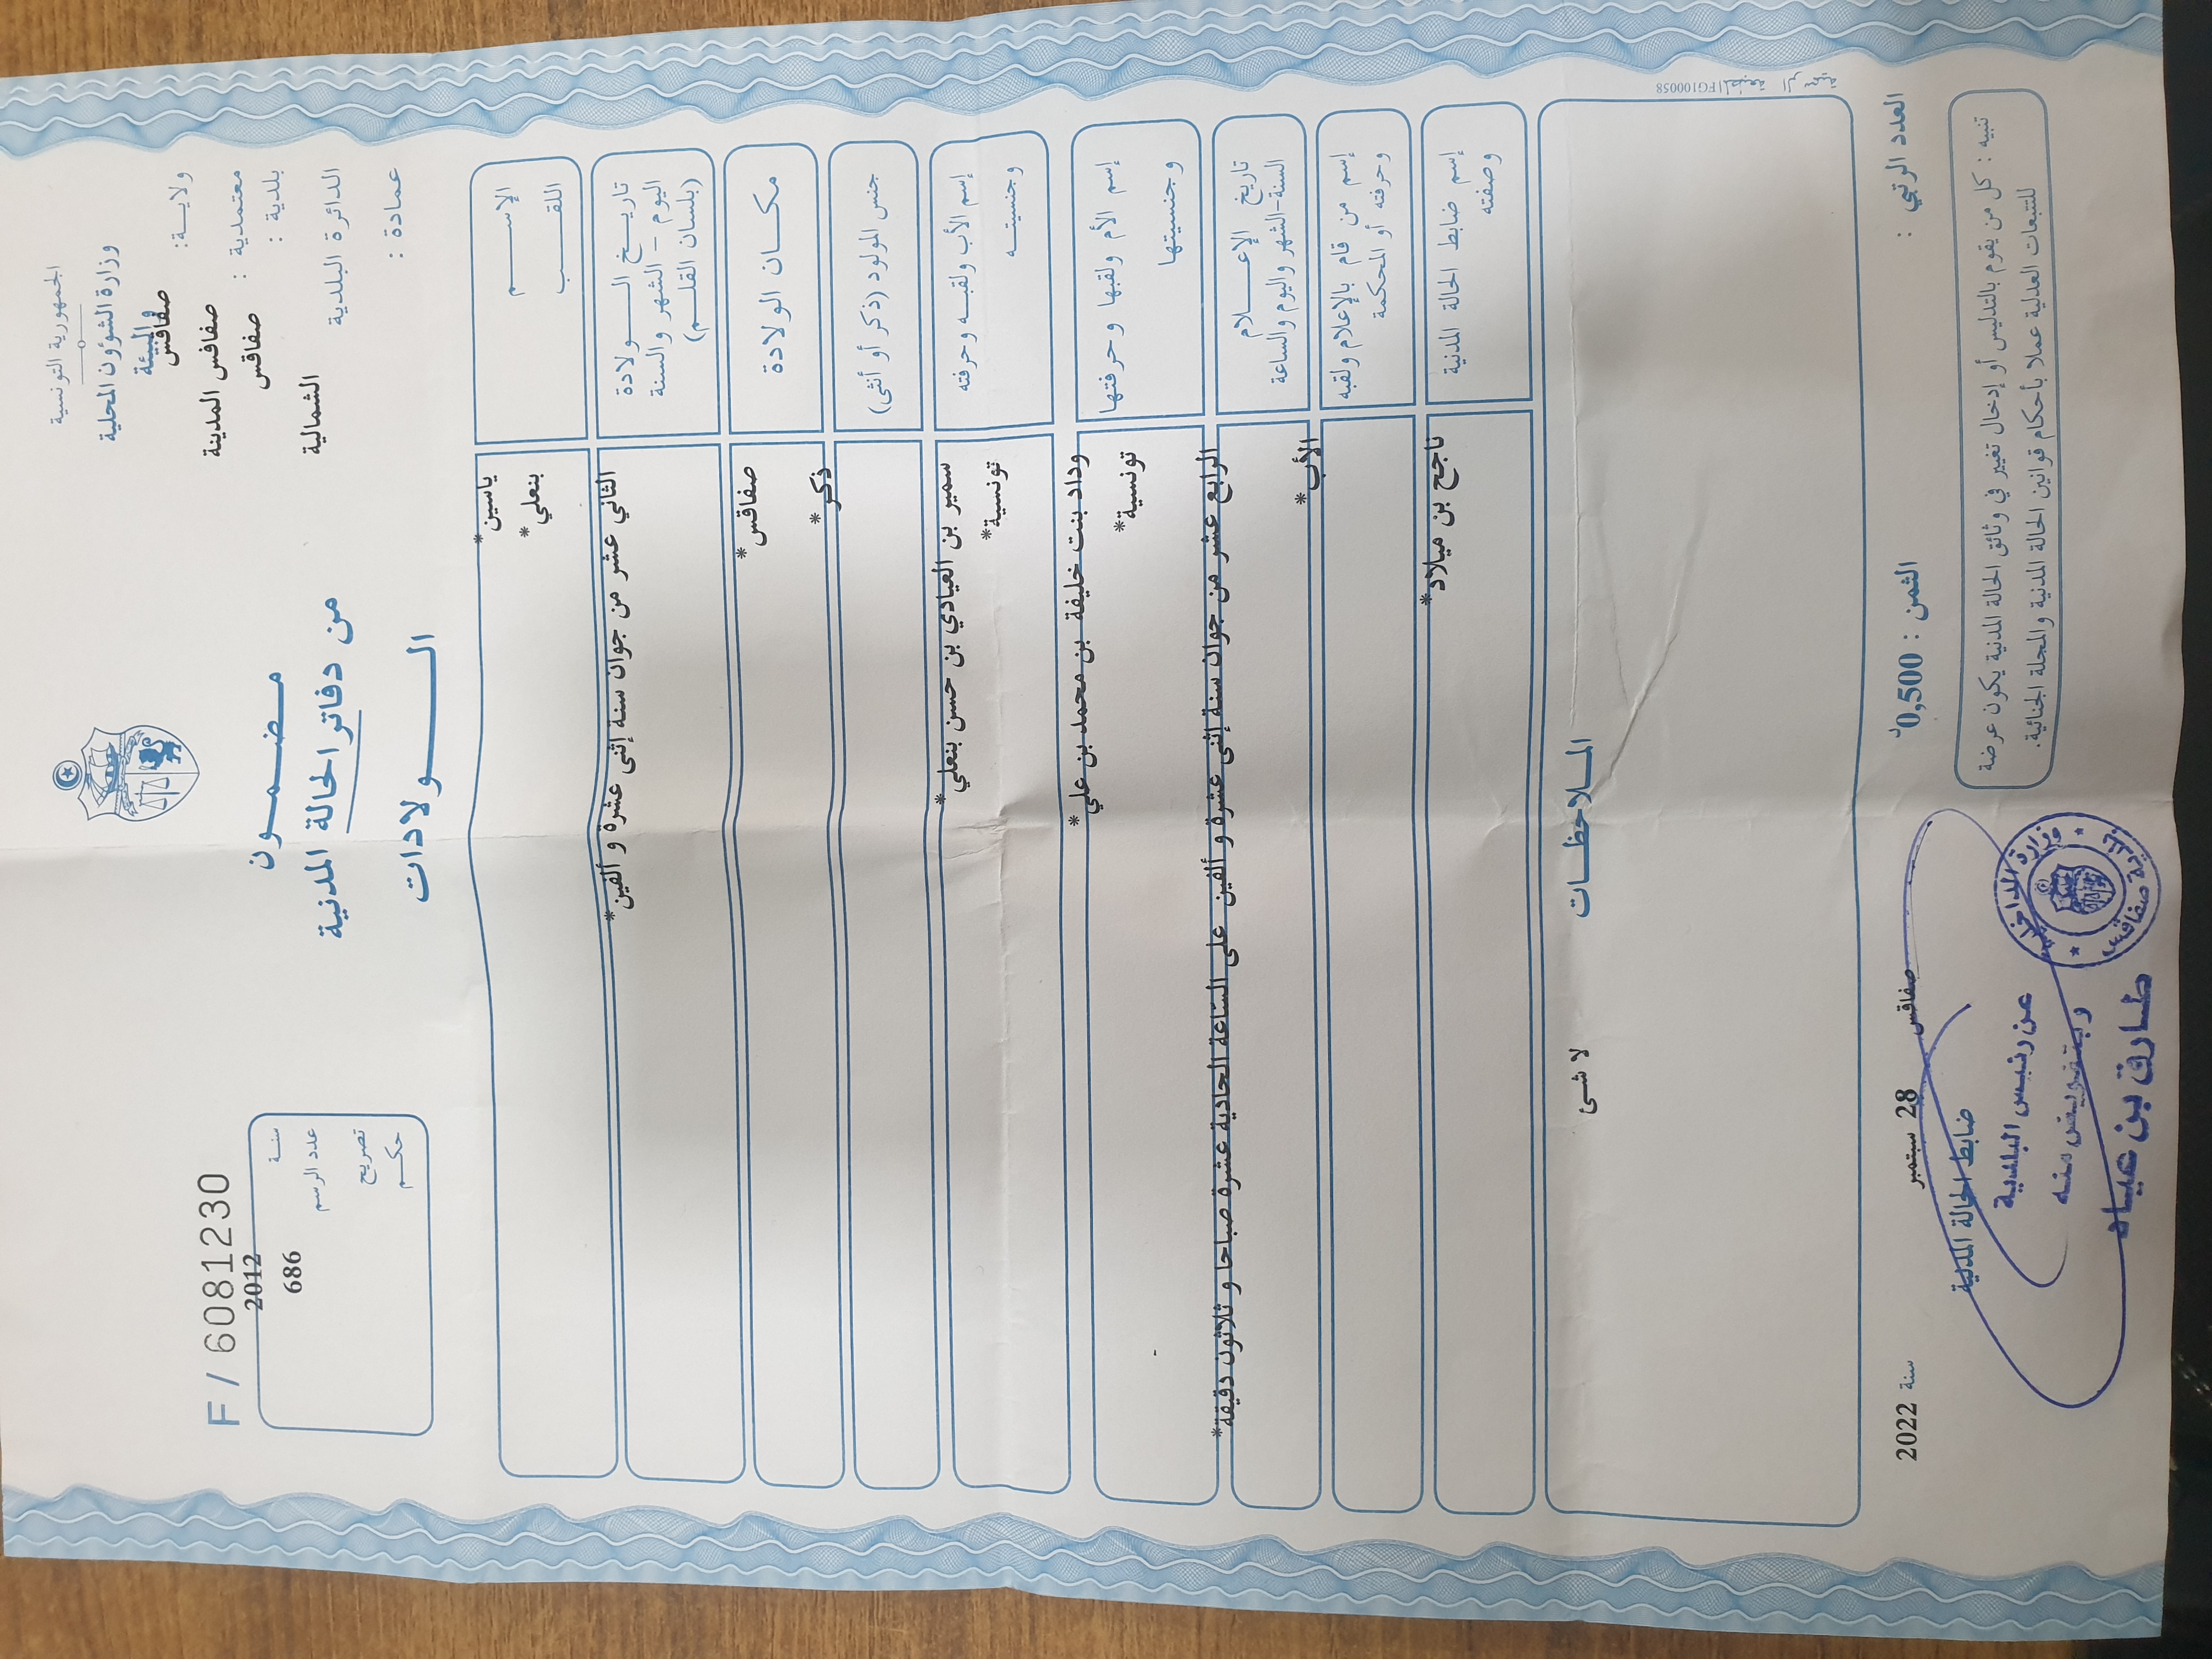 الجمهورية التونسية
وزارة الشؤون المحلية
والبيئة
ولايـة: صفاقس
معتمدية : صفاقس المدينة
بلدية : صفاقس
الدائرة البلدية
الشمالية
عمادة :
مـضـمـون
من دفاتر الحالة المدنية
الـــولادات
F / 6081230
سنـة 2012
عدد الرسم 686
تصريح
حكـم
الإســـم ياسين*
اللقـــب بنعلي*
تاريـخ الـــولادة
اليوم - الشهر والسنة
(بلسان القلـم)
الثاني عشر من جوان سنة إثنى عشرة و ألفين*
مكـان الولادة صفاقس*
جنس المولود (ذكر أو أنثى) ذكر*
إسم الأب ولقبـه وحرفته سمير بن العيادي بن حسن بنعلي*
وجنسيتـه تونسية*
إسم الأم ولقبها وحرفتها وداد بنت خليفة بن محمد بن علي*
وجنسيتها تونسية*
تاريخ الإعـــلام
السنة-الشهر واليوم والساعة
الرابع عشر من جوان سنة إثنى عشرة و ألفين على الساعة الحادية عشرة صباحا و ثلاثون دقيقة*
إسم من قام بالإعلام ولقبه
وحرفته أو المحكمة
الأب*
إسم ضابط الحالة المدنية
وصفته
ناجح بن ميلاد*
الملاحظـات
لا شئ
FG100058
العدد الرتبي :
الثمن : 0,500د
صفاقس 28 سبتمبر سنة 2022
ضابط الحالة المدنية
تنبيه : كل من يقوم بالتدليس أو إدخال تغيير في وثائق الحالة المدنية يكون عرضة
للتتبعات العدلية عملا بأحكام قوانين الحالة المدنية والمجلة الجنائية.
عن رئيس البلدية
وبتفويض منه
طارق بن عياد
وزارة الداخلية
بلدية صفاقس